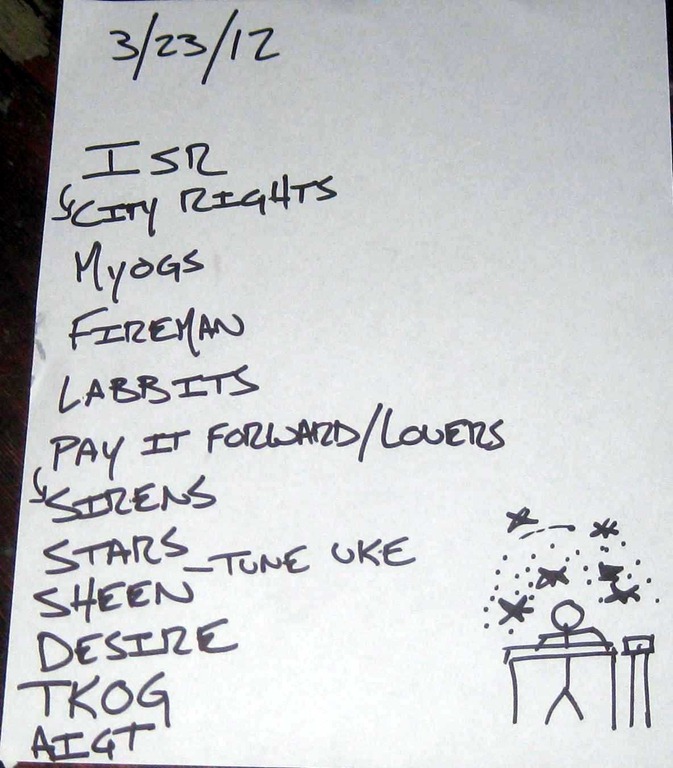 3/23/12
ISR
CITY RIGHTS
MYOGS
FIREMAN
LABBITS
PAY IT FORWARD/LOVERS
SIRENS
STARS - TUNE UKE
SHEEN
DESIRE
TKOG
AIGT